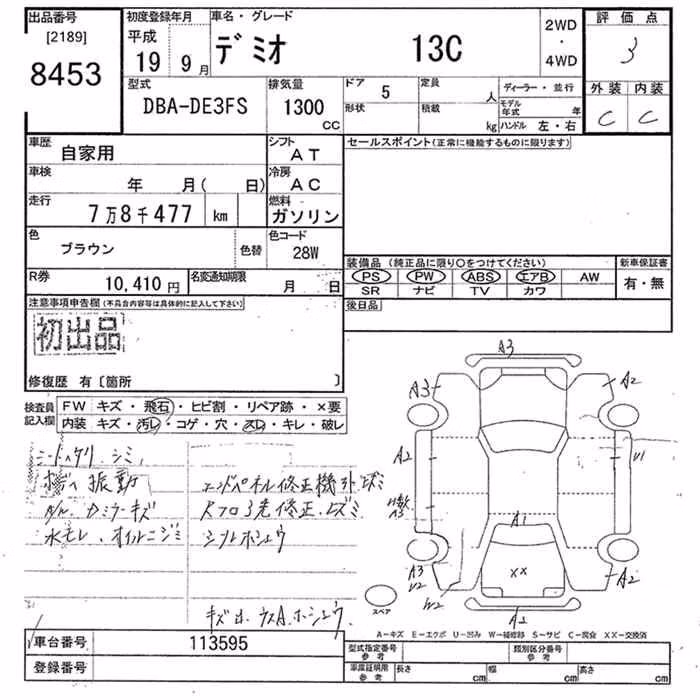 出品番号
[2189]
8453
初度登録年月
平成
19 9月
車名・グレード
デミオ 13C
2WD
・
4WD
評価点
3
外装 内装
C C
型式
DBA-DE3FS
排気量
1300
CC
ドア 5
形状
定員 人
積載 kg
ディーラー・並行
モデル年式 年
ハンドル 左・右
車歴
自家用
シフト
AT
車検
年 月( 日)
冷房
AC
走行
7万8千477 km
燃料
ガソリン
色
ブラウン
色替
色コード
28W
R券
10,410円
名変通知期限
月 日
セールスポイント(正常に機能するものに限ります)
装備品(純正品に限り○をつけてください)
PS PW ABS エアB AW
SR ナビ TV カワ
新車保証書
有・無
後日品
注意事項申告欄(不具合内容等は具体的に記入して下さい)
初出品
修復歴 有〔箇所 〕
検査員
記入欄
FW キズ・飛石・ヒビ割・リペア跡・×要
内装 キズ・汚レ・コゲ・穴・スレ・キレ・破レ
シートヘタリ、シミ、
振動
キズ
水モレ、オイルニジミ
エンドパネル修正機外ヒズミ
修正、ヒズミ
ホシュウ
キズ ウスA、ホシュウ
A3
A3
A2
A2
U1
A3
A1
XX
A3
U2
W2
A2
A2
スペア
A-キズ E-エクボ U-凹み W-補修跡 S-サビ C-腐食 XX-交換済
車台番号
113595
登録番号
型式指定番号
参考
類別区分番号
参考
車庫証明用
参考
長さ cm
幅 cm
高さ cm